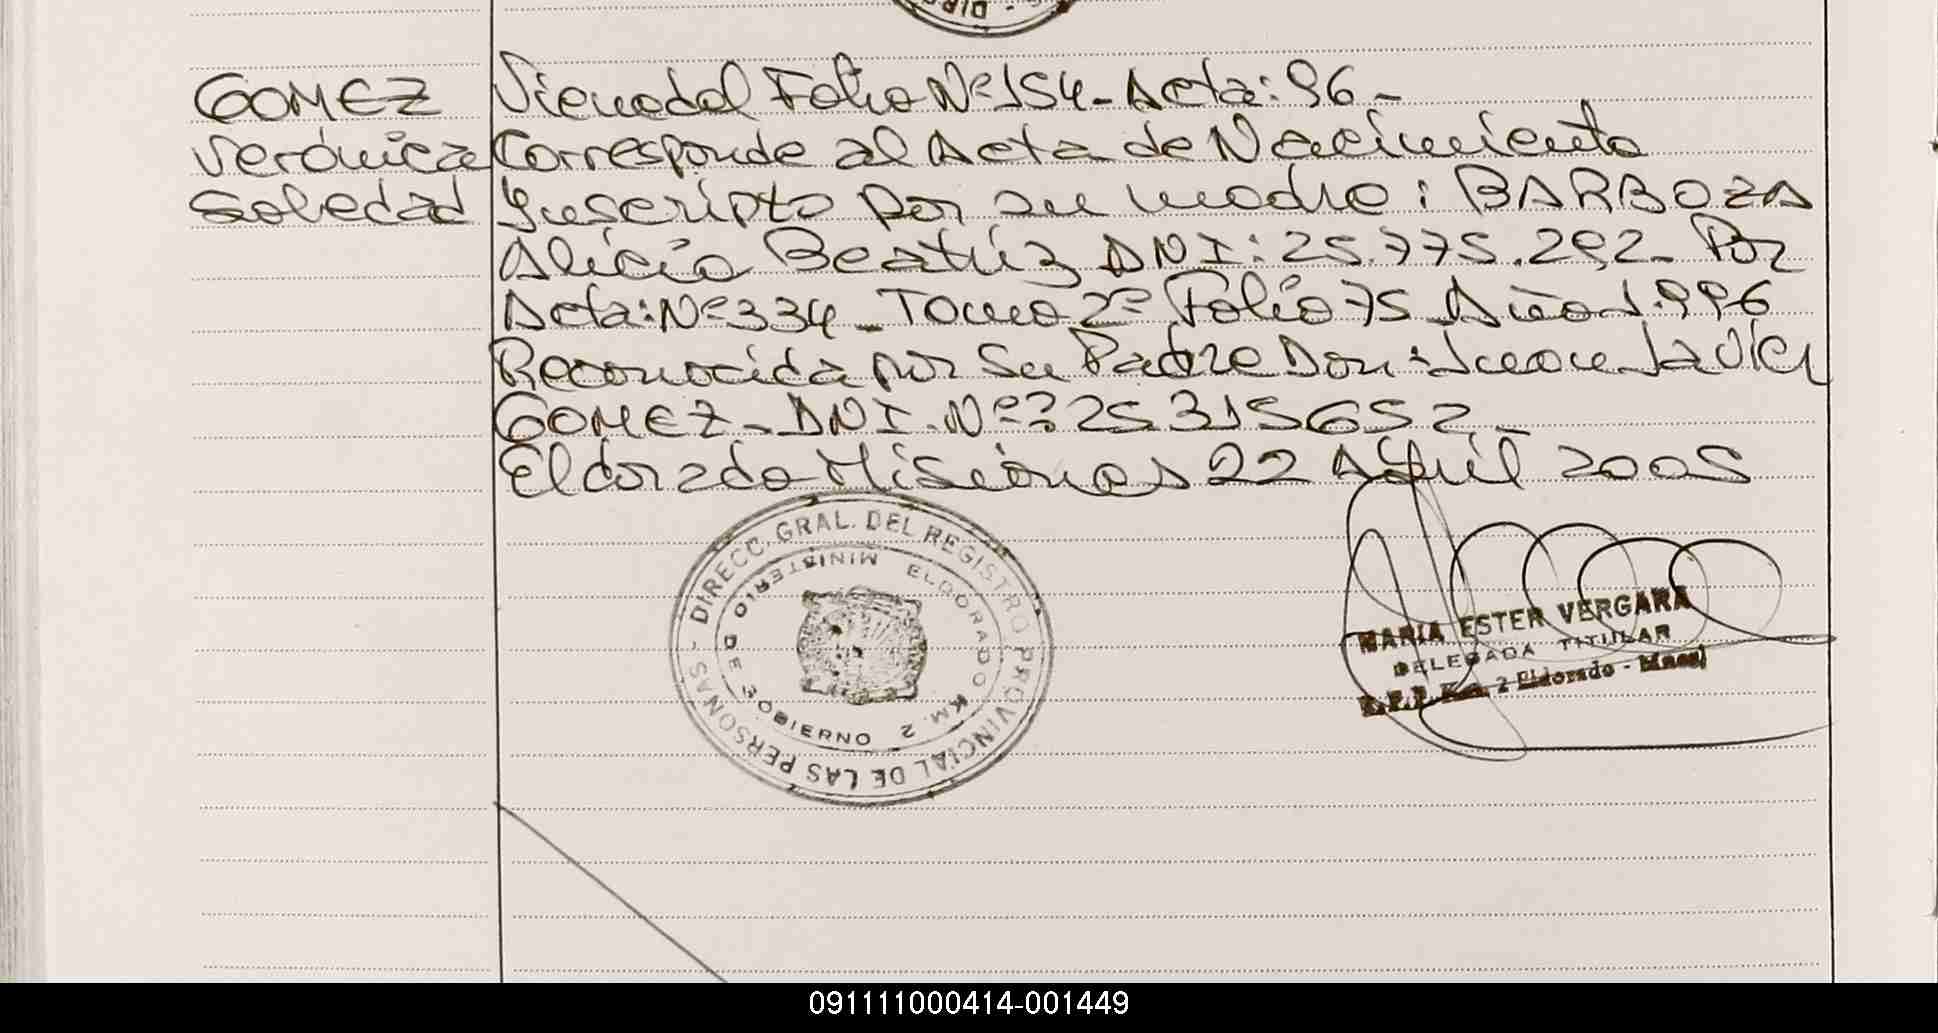 GOMEZ
Verónica
Soledad
Viene del Folio Nº 154 - Acta: 96 -
Corresponde al Acta de Nacimiento
Inscripto por su madre: BARBOZA
Alicia Beatríz DNI: 25.775.292 - Por
Acta: Nº 334 - Tomo 2º Folio 75 Año 1.996
Reconocida por Su Padre Don: Juan Javier
GOMEZ - DNI. Nº: 25315652 -
Eldorado Misiones 22 Abril 2005
DIRECC. GRAL. DEL REGISTRO PROVINCIAL DE LAS PERSONAS -
MINISTERIO DE GOBIERNO
ELDORADO KM. 2
MARIA ESTER VERGARA
DELEGADA TITULAR
2 Eldorado - Mnes)
091111000414-001449